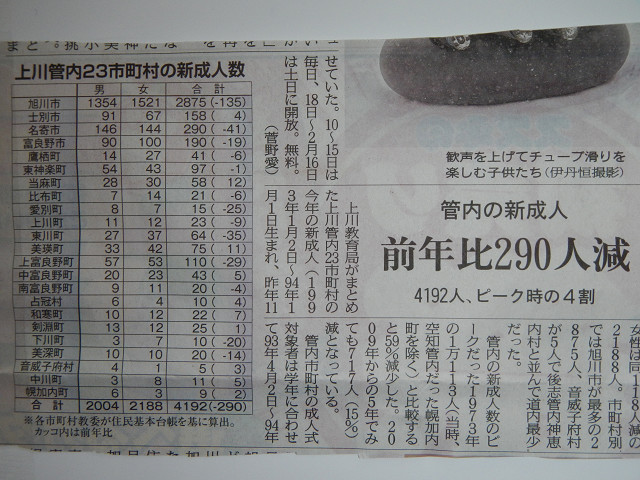 上川管内23市町村の新成人数
男 女 合計
旭川市 1354 1521 2875(-135)
士別市 91 67 158( 4)
名寄市 146 144 290( -41)
富良野市 90 100 190( -19)
鷹栖町 14 27 41( -6)
東神楽町 54 43 97( -1)
当麻町 28 30 58( 12)
比布町 7 14 21( -6)
愛別町 8 7 15( -25)
上川町 11 12 23( -9)
東川町 27 37 64( -35)
美瑛町 33 42 75( 11)
上富良野町 57 53 110( -29)
中富良野町 20 23 43( 5)
南富良野町 9 11 20( -4)
占冠村 6 4 10( 4)
和寒町 10 12 22( 7)
剣淵町 13 12 25( 1)
下川町 3 7 10( -20)
美深町 10 10 20( -14)
音威子府村 4 1 5( 3)
中川町 3 8 11( 5)
幌加内町 6 3 9( 2)
合計 2004 2188 4192(-290)
※各市町村教委が住民基本台帳を基に算出。
カッコ内は前年比
せていた。10～15日は
毎日、18日～2月16日
は土日に開放。無料。
(菅野愛)
歓声を上げてチューブ滑りを
楽しむ子供たち(伊丹恒撮影)
管内の新成人
前年比290人減
4192人、ピーク時の4割
上川教育局がまとめ
た上川管内23市町村の
今年の新成人(199
3年1月2日～94年1
月1日生まれ、昨年11
女性は同
2188人。市町村別
では旭川市が最多の2
875人、音威子府村
が5人で後志管内神恵
内村と並んで道内最少
だった。
管内の新成人数のピ
ークだった1973年
の1万113人(当時、
空知管内だった幌加内
町を除く)と比較する
と59%減少した。20
09年からの5年でみ
ても717人(15%)
減となっている。
管内市町村の成人式
対象者は学年に合わせ
て93年4月2日～94年